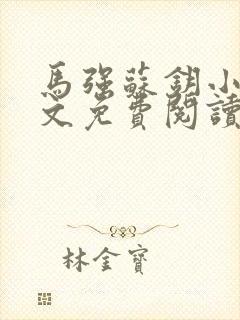 馬強蘇鈅小
文免費閱讀
林金寶